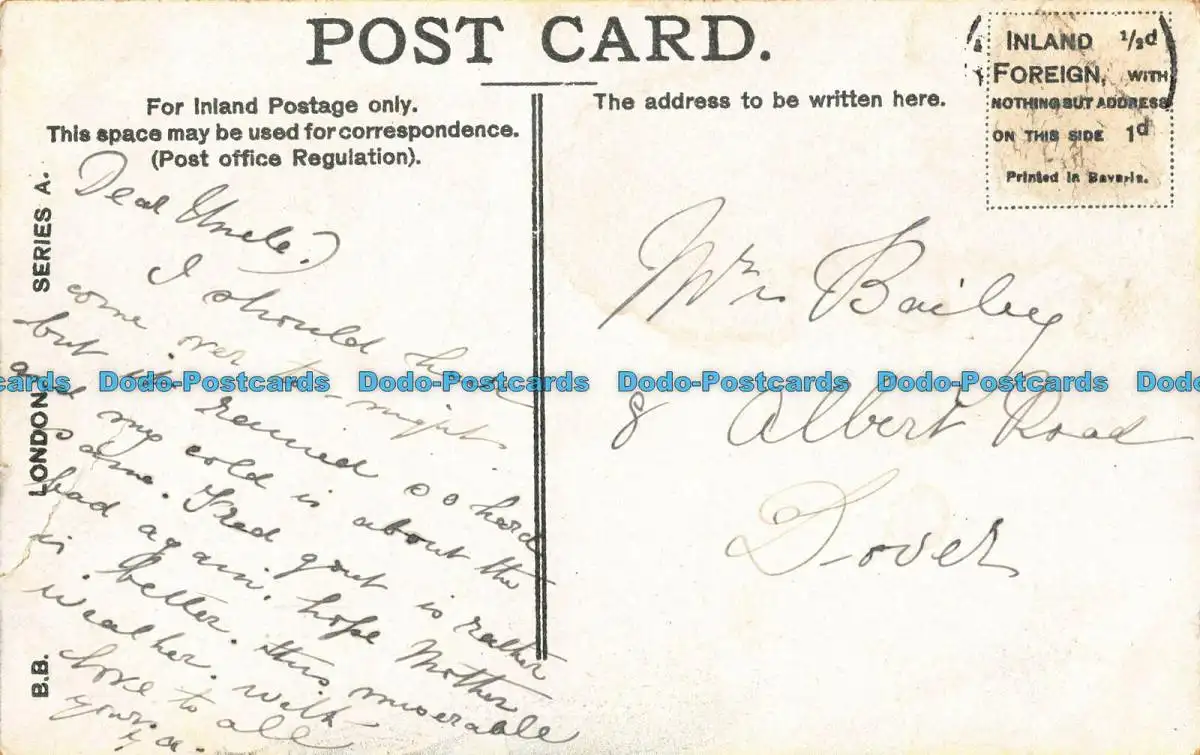 POST CARD.
For Inland Postage only.
This space may be used for correspondence.
(Post office Regulation).
The address to be written here.
INLAND ½d
FOREIGN, WITH
NOTHING BUT ADDRESS
ON THIS SIDE 1d
Printed in Bavaria.
B.B. LONDON. SERIES A.
Dear Uncle,
I should have
come over to-night
but it rained so hard
and my cold is about the
same. Fred gout is rather
bad again. hope Mother
is better. this miserable
weather. with
love to all
yours
Mr Bailey
8 Albert Road
Dover
Dodo-Postcards Dodo-Postcards Dodo-Postcards Dodo-Postcards